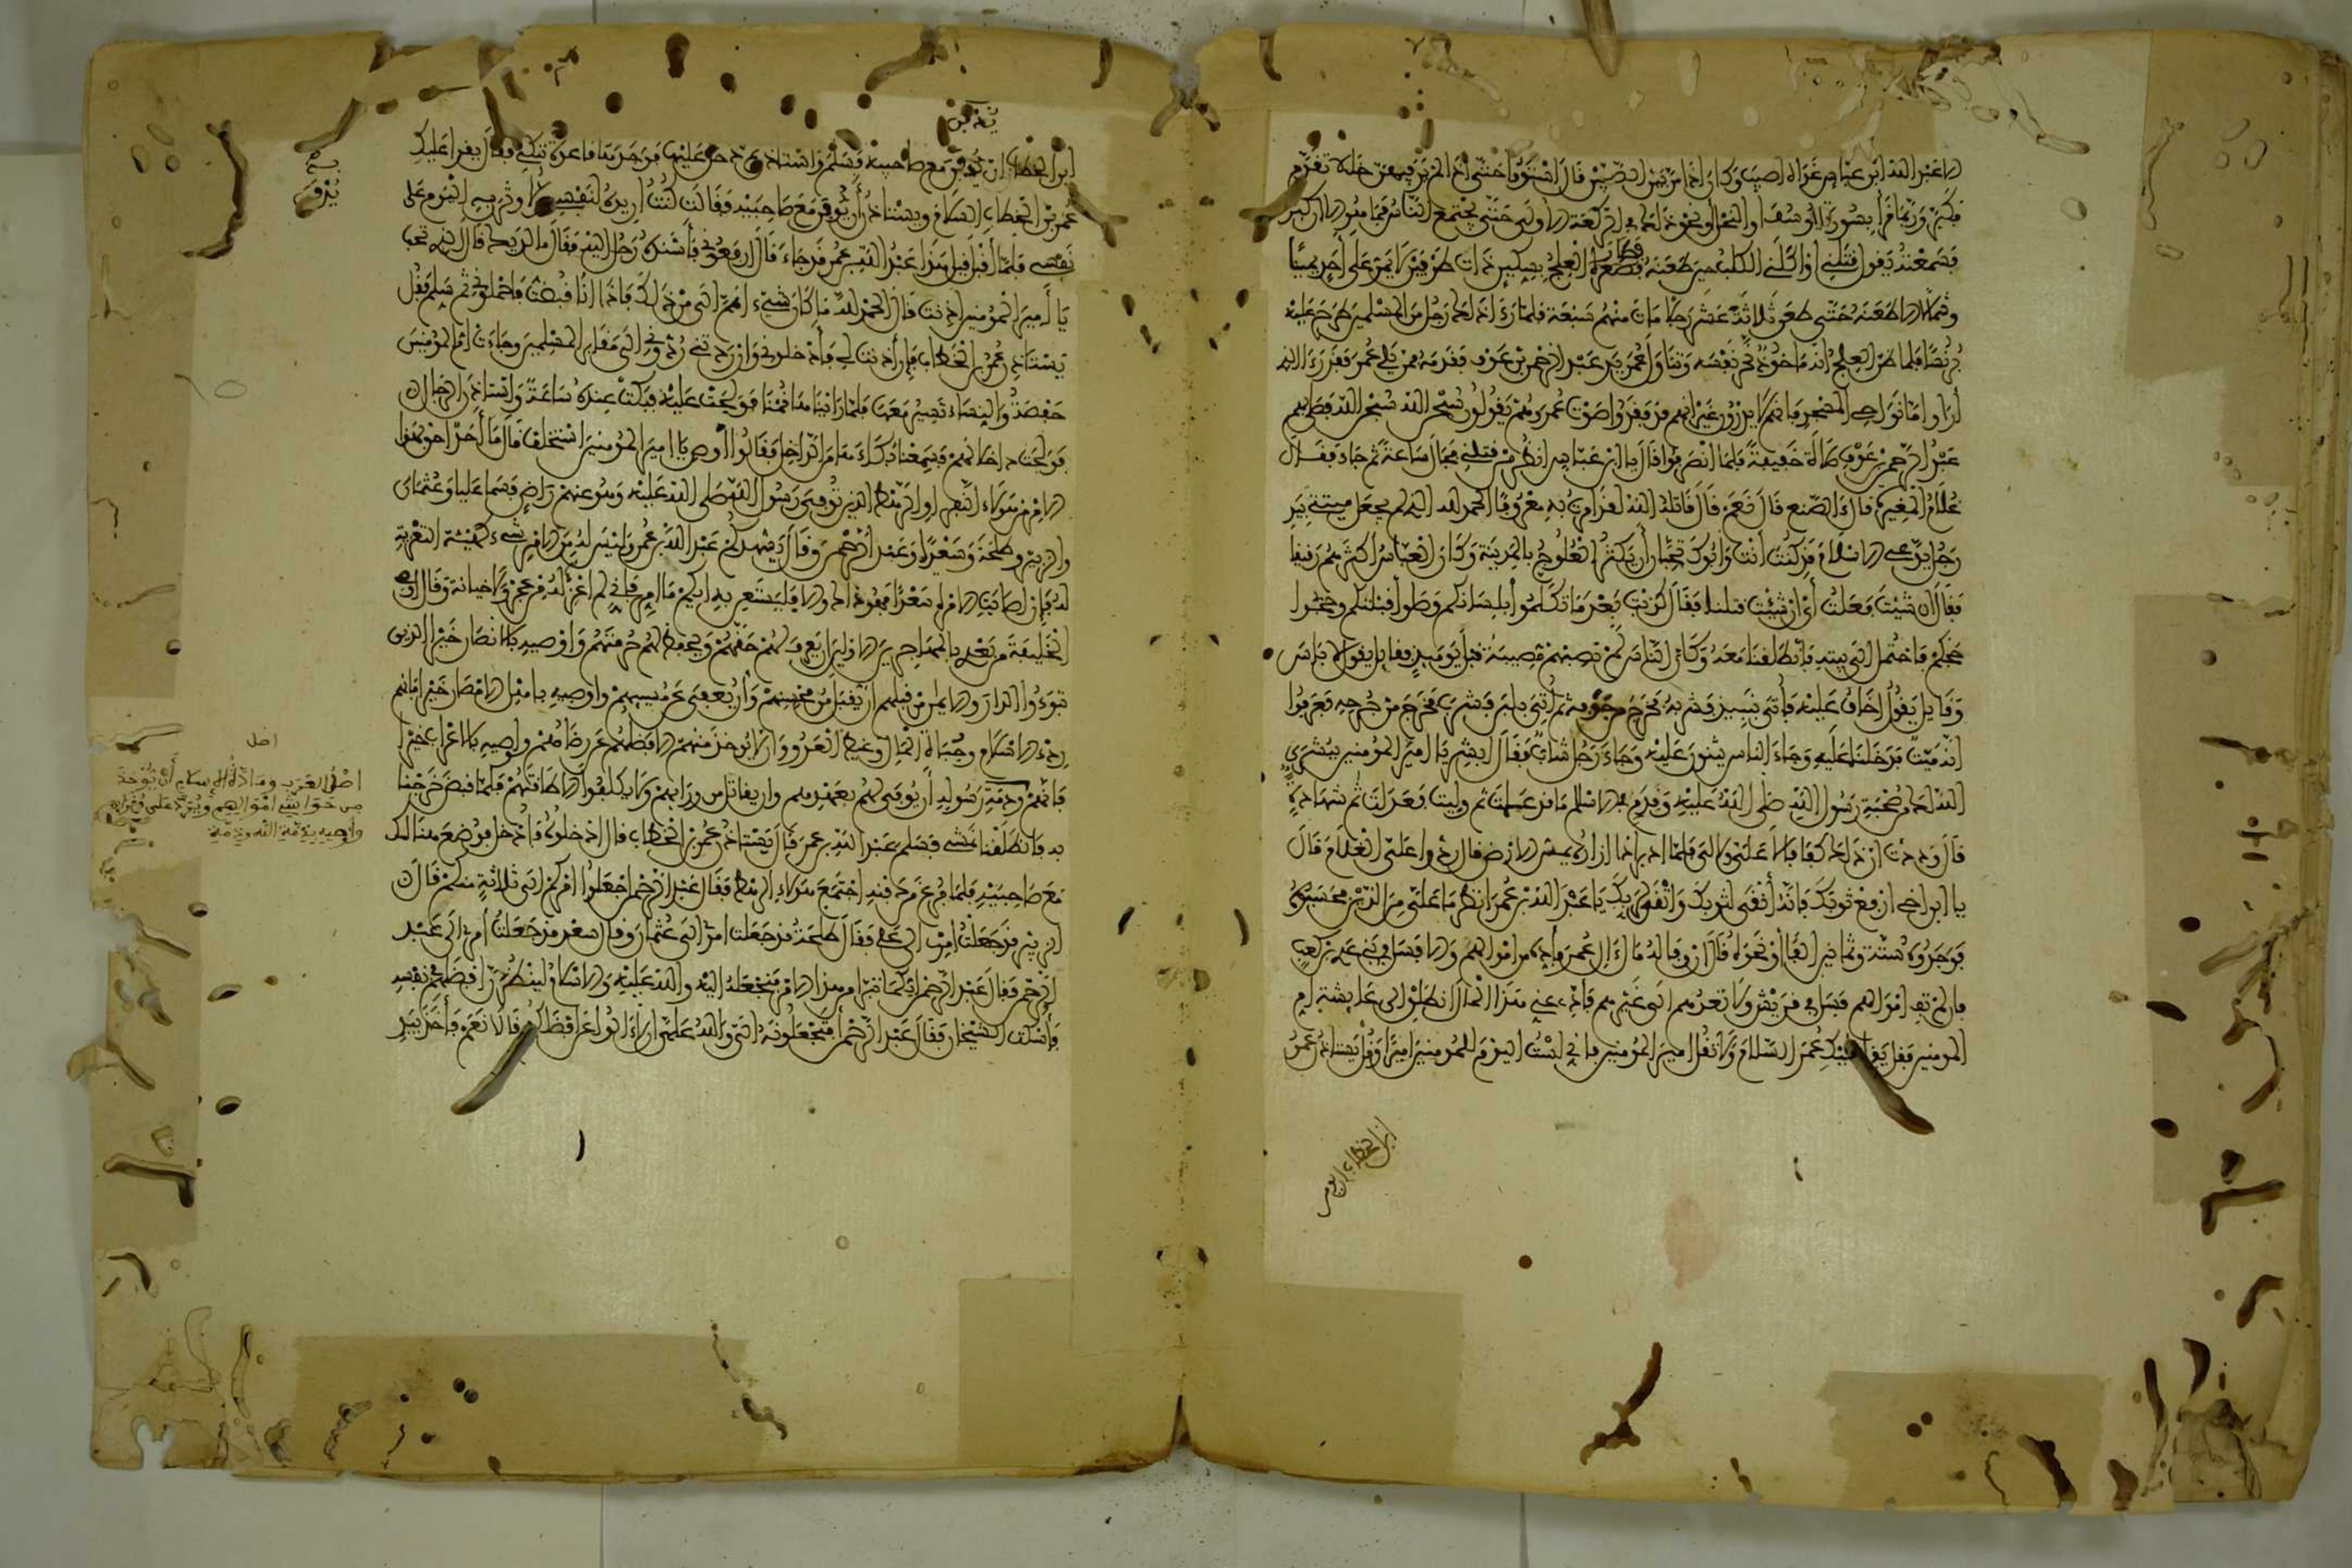 الا عبد الله ابن عباس غداة اصيب وكان اذا مر بين الصفين قال استووا حتى اذا لم ير فيهن خللا تقدم
فكبر وربما قرا بسورة يوسف او النحل او نحو ذلك في الركعة الاولى حتى يجتمع الناس فما هو الا ان كبر
فسمعته يقول قتلني او اكلني الكلب حين طعنه فطار العلج بسكين ذات طرفين لا يمر على احد يمينا
وشمالا الا طعنه حتى طعن ثلاثة عشر رجلا مات منهم سبعة فلما راى ذلك رجل من المسلمين طرح عليه
برنسا فلما ظن العلج انه ماخوذ نحر نفسه وتناول عمر يد عبد الرحمن بن عوف فقدمه فمن يلي عمر فقد راى الذي
ارا واما نواحي المسجد فانهم لا يدرون غير انهم قد فقدوا صوت عمر وهم يقولون سبحن الله سبحن الله فصلى بهم
عبد الرحمن بن عوف صلاة خفيفة فلما انصرفوا قال يا ابن عباس انظر من قتلني فجال ساعة ثم جاء فقال
غلام المغيرة قال الصنع قال نعم قال قاتله الله لقد امرت به معروفا الحمد لله الذي لم يجعل ميتتي بيد
رجل يدعي الاسلام قد كنت انت وابوك تحبان ان تكثر العلوج بالمدينة وكان العباس اكثرهم رقيقا
فقال ان شئت فعلت أي ان شئت قتلنا فقال كذبت بعد ما تكلموا بلسانكم وصلوا قبلتكم وحجوا
حجكم فاحتمل الى بيته فانطلقنا معه وكان الناس لم تصبهم مصيبة قبل يومئذ فقايل يقول لا باس
وقايل يقول اخاف عليه فأتي بنبيذ فشربه فخرج من جوفه ثم أتي بلبن فشرب فخرج من جرحه فعرفوا
انه ميت فدخلنا عليه وجاء الناس يثنون عليه وجاء رجل شاب فقال ابشر يا امير المومنين ببشرى
الله لك من صحبة رسول الله صلى الله عليه وقدم في الاسلام ما قد علمت ثم وليت فعدلت ثم شهادة
قال وددت ان ذلك كفافا لا علي ولا لي فلما ادبر اذا ازاره يمس الارض فقال ردوا علي الغلام قال
يا ابن اخي ارفع ثوبك فانه أنقى لثوبك واتقى لربك يا عبد الله بن عمر انظر ما علي من الدين فحسبوه
فوجدوه ستة وثمانين الفا او نحوه قال ان وفى له مال ال عمر فأده من اموالهم والا فسل في بني عدي بن كعب
فان لم تف اموالهم فسل في قريش ولا تعدهم الى غيرهم فاد عني هذا المال انطلق الى عايشة ام
المومنين فقل يقرا عليك عمر السلام ولا تقل امير المومنين فاني لست اليوم للمومنين اميرا وقل يستاذن عمر
ابن الخطاب ان يدفن
يدفن
ابن الخطاب ان يدفن مع صاحبيه فسلم واستاذن ثم دخل عليها فوجدها قاعدة تبكي فقال يقرا عليك
عمر بن الخطاب السلام ويستاذن أن يدفن مع صاحبيه فقالت كنت اريده لنفسي ولاوثرن به اليوم على
نفسي فلما أقبل قيل هذا عبد الله بن عمر قد جاء قال ارفعوني فأسنده رجل اليه فقال ما لديك قال الذي تحب
يا أمير المومنين اذنت قال الحمد لله ما كان شيء اهم الي من ذلك فاذا انا قبضت فاحملوني ثم سلم فقل
يستاذن عمر بن الخطاب فإن أذنت لي فأدخلوني وان ردتني ردوني الى مقابر المسلمين وجاءت ام المومنين
حفصة والنساء تسير معها فلما رايناها قمنا فولجت عليه فبكت عنده ساعة واستاذن الرجال
فولجت داخلا لهم فسمعنا بكاءها من الداخل فقالوا أوص يا امير المومنين استخلف قال ما أحد احق بهذا
الامر من هولاء النفر او الرهط الذين توفي رسول الله صلى الله عليه وهو عنهم راض فسما عليا وعثمان
والزبير وطلحة وسعدا وعبد الرحمن وقال يشهدكم عبد الله بن عمر وليس له من الامر شيء كهيئة التعزية
له فان اصابت الامرة سعدا فهو ذاك والا فليستعن به ايكم ما امر فاني لم اعزله من عجز ولا خيانة وقال اوصي
الخليفة من بعدي بالمهاجرين الاولين ان يعرف لهم حقهم ويحفظ لهم حرمتهم واوصيه بالانصار خيرا الذين
تبوءوا الدار والايمان من قبلهم ان يقبل من محسنهم وأن يعفى عن مسيهم واوصيه باهل الامصار خيرا فانهم
ردء الاسلام وجباة المال وغيظ العدو وان لا يوخذ منهم الا فضلهم عن رضاهم واوصيه بالاعراب خيرا
فانهم وذمة رسوله أن يوفي لهم بعهدهم وان يقاتل من ورايهم ولا يكلفوا الا طاقتهم فلما قبض خرجنا
به فانطلقنا نمشي فسلم عبد الله بن عمر قال يستاذن عمر بن الخطاب قال ادخلوه فادخل فوضع هنالك
مع صاحبيه فلما فرغ من دفنه اجتمع هولاء الرهط فقال عبد الرحمن اجعلوا امركم الى ثلاثة منكم قال
الزبير قد جعلت امري الى علي فقال طلحة قد جعلت امري الى عثمان وقال سعد قد جعلت أمري الى عبد
الرحمن فقال عبد الرحمن ايكما تبرا من هذا الامر فنجعله اليه والله عليه والاسلام لينظرن افضلهم في نفسه
فأسكت الشيخان فقال عبد الرحمن أفتجعلونه الي والله علي ان لا ءالوا عن افضلكم قالا نعم فأخذ بيد
يدفن
اصل
اصل العرب ومادة الإسلام أن يوخذ
من حواشي اموالهم ويرد على فقرايهم
وأوصيه بذمة الله وذمة